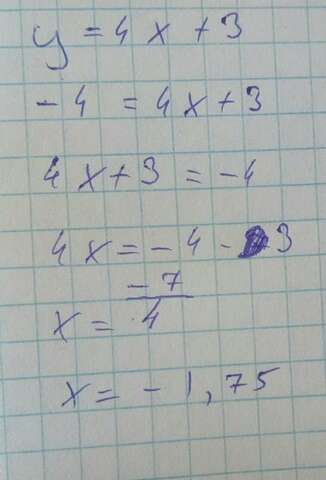 y = 4x + 3
-4 = 4x + 3
4x + 3 = -4
4x = -4 - 3
x = -7/4
x = -1,75